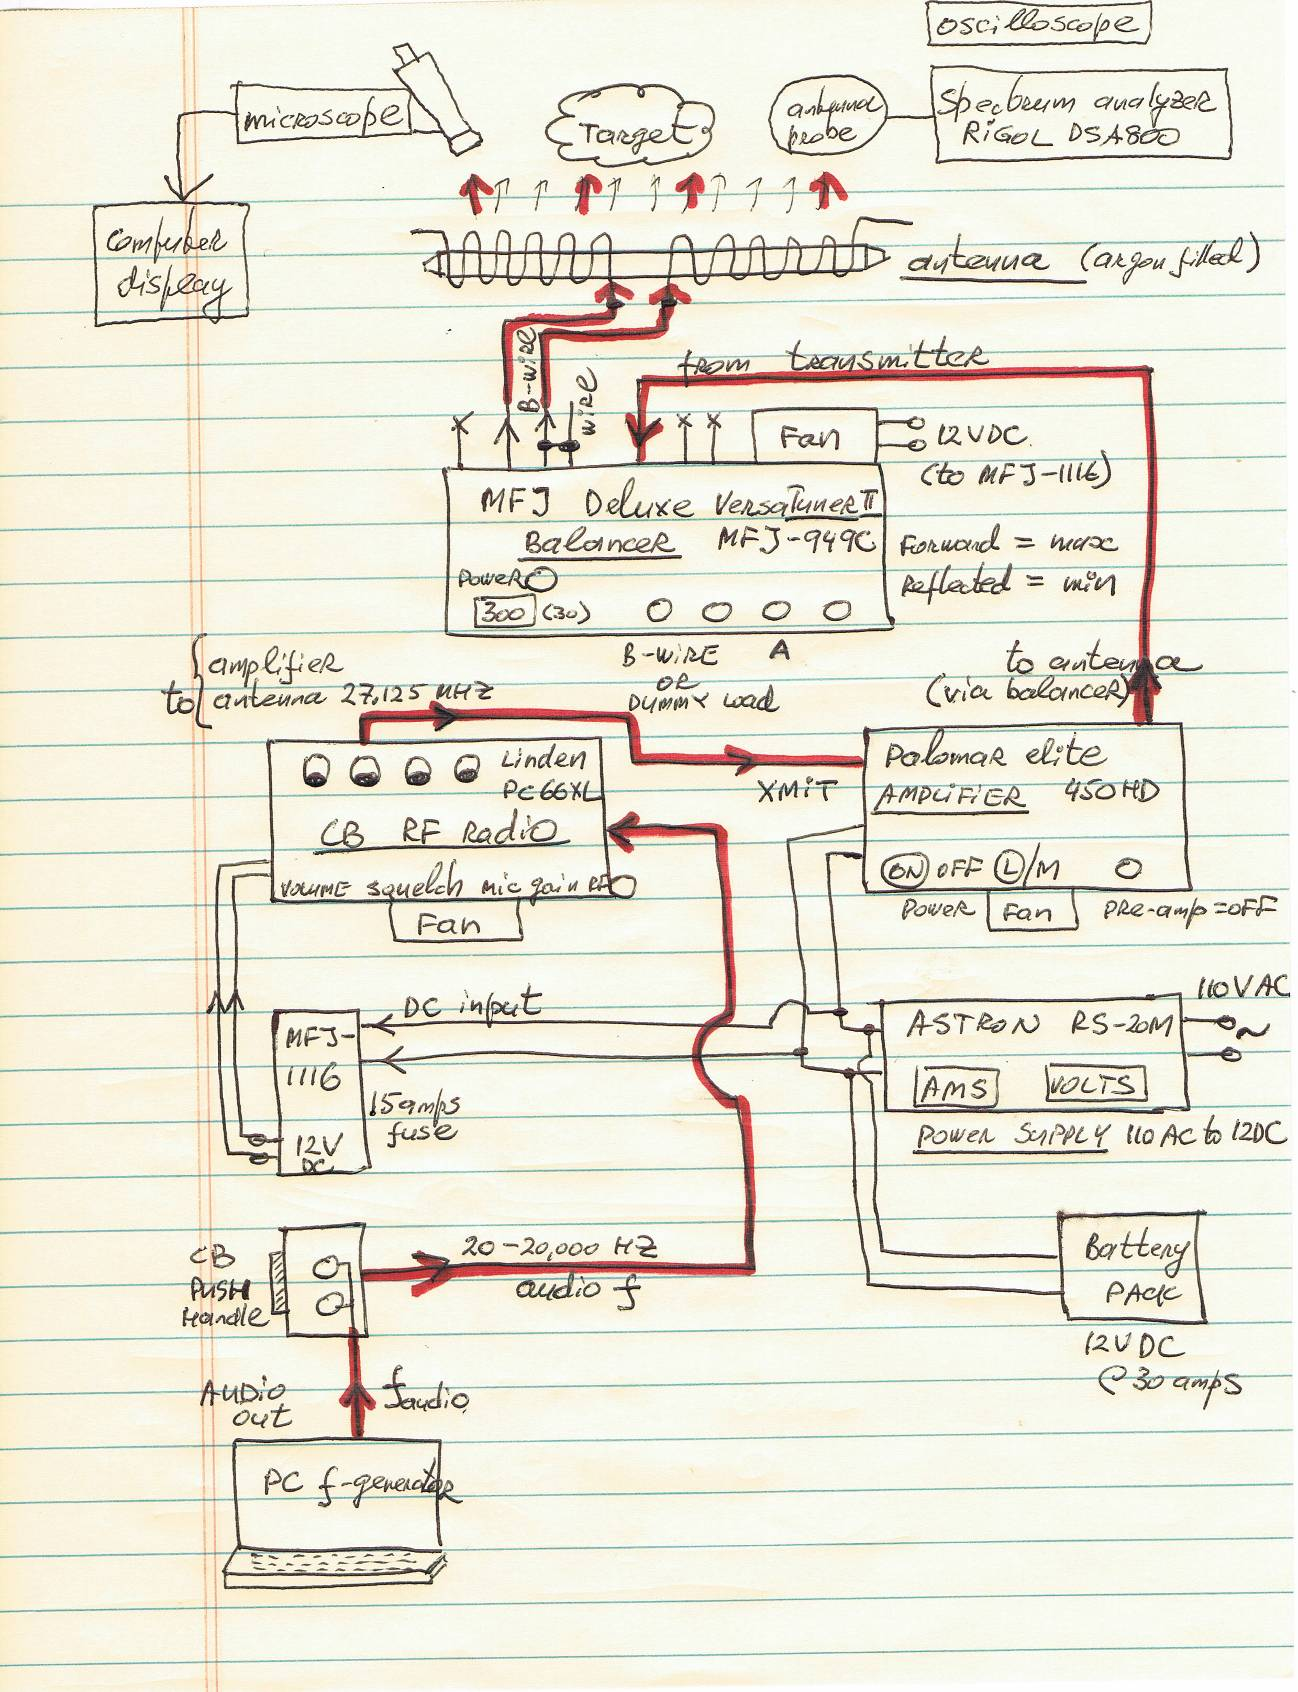 oscilloscope
microscope
Target
antenna
probe
Spectrum analyzer
RiGOL DSA800
computer
display
antenna (argon filled)
B-wire
wire
from transmitter
Fan
12VDC
(to MFJ-1116)
MFJ Deluxe VersaTuner II
Balancer MFJ-949C
Forward = max
Reflected = min
POWER
300 (30)
B-WIRE A
OR
DUMMY Load
to antenna
(via balancer)
to
amplifier
antenna 27.125 MHZ
Linden
PC66XL
CB RF Radio
VOLUME squelch mic gain RF
Fan
XMIT
Palomar elite
AMPLIFIER 450HD
ON OFF L/M
Power Fan PRE-amp=OFF
DC input
MFJ-
1116
12V
DC
15amps
fuse
110VAC
~
ASTRON RS-20M
AMS VOLTS
POWER SUPPLY 110 AC to 12DC
CB
PUSH
Handle
20-20,000 HZ
audio f
Battery
PACK
12VDC
@ 30 amps
AUDIO
out
f audio
PC f-generator